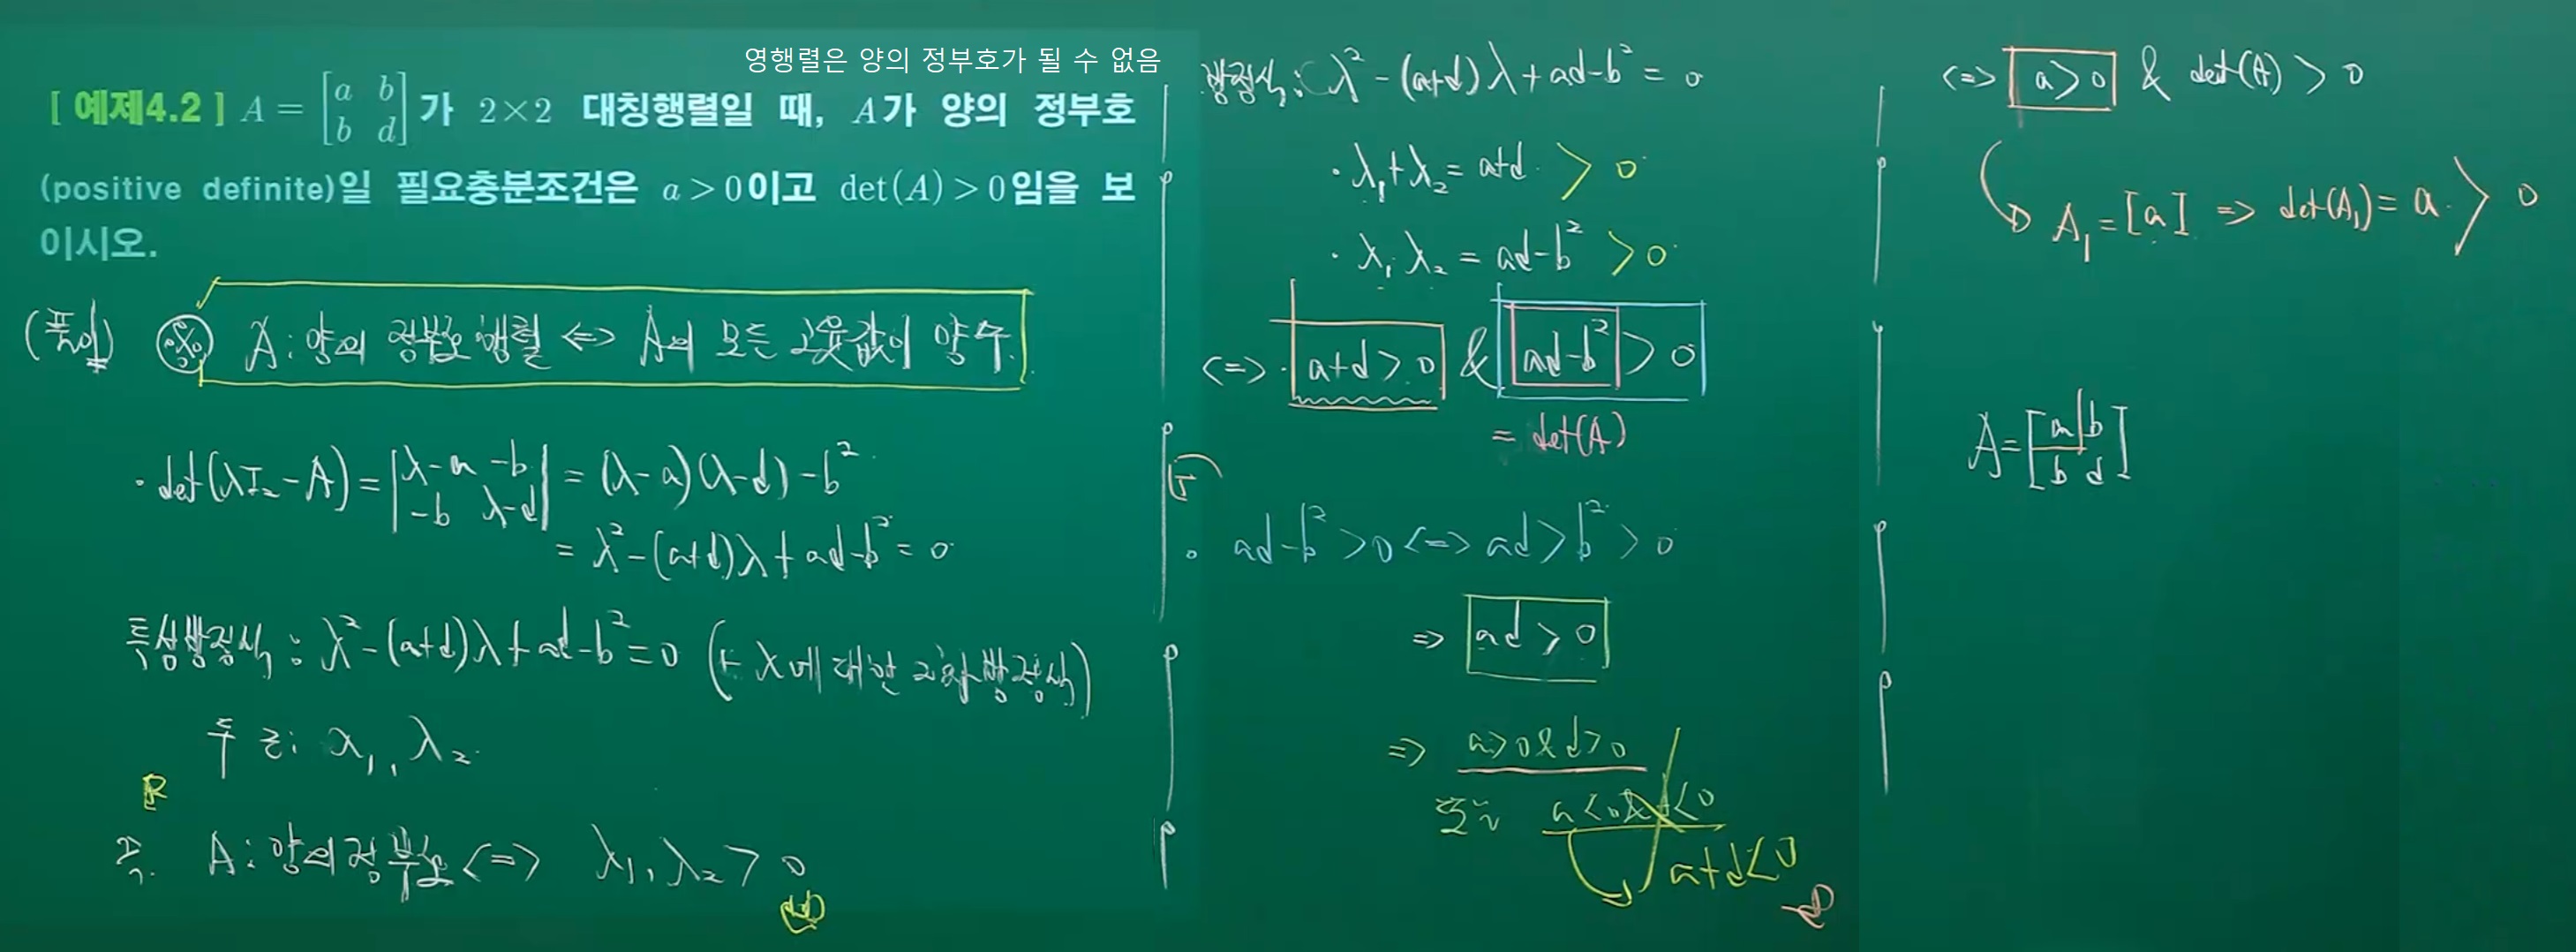 영행렬은 양의 정부호가 될 수 없음
[ 예제4.2 ] A = [a b; b d] 가 2×2 대칭행렬일 때, A가 양의 정부호
(positive definite)일 필요충분조건은 a > 0이고 det(A) > 0임을 보
이시오.
(풀이) ※ A : 양의 정부호 행렬 <=> A의 모든 고윳값이 양수.
· det(λI₂ - A) = |λ-a -b; -b λ-d| = (λ-a)(λ-d) - b²
= λ² - (a+d)λ + ad-b² = 0
특성방정식 : λ² - (a+d)λ + ad-b² = 0 (λ에 대한 2차방정식)
두 근: λ₁, λ₂
즉. A : 양의 정부호 <=> λ₁, λ₂ > 0
방정식 : λ² - (a+d)λ + ad-b² = 0
· λ₁+λ₂ = a+d > 0
· λ₁ λ₂ = ad-b² > 0
<=> · a+d > 0 & ad-b² > 0
= det(A)
ad-b² > 0 <=> ad > b² > 0
=> ad > 0
=> a>0 & d>0
또는 a<0 & d<0
a+d<0
<=> a>0 & det(A) > 0
A₁ = [a] => det(A₁) = a > 0
A = [a b; b d]